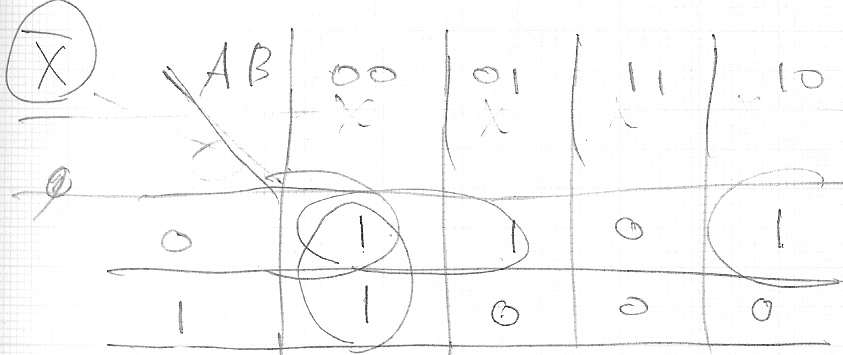 X̅ AB 00 01 11 10
0 1 1 0 1
1 1 0 0 0